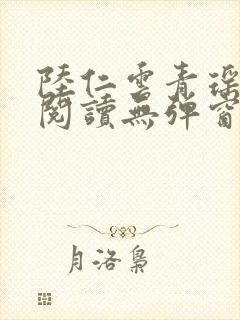 陸仁雲青瑶
閱讀無彈窗
月洛梟